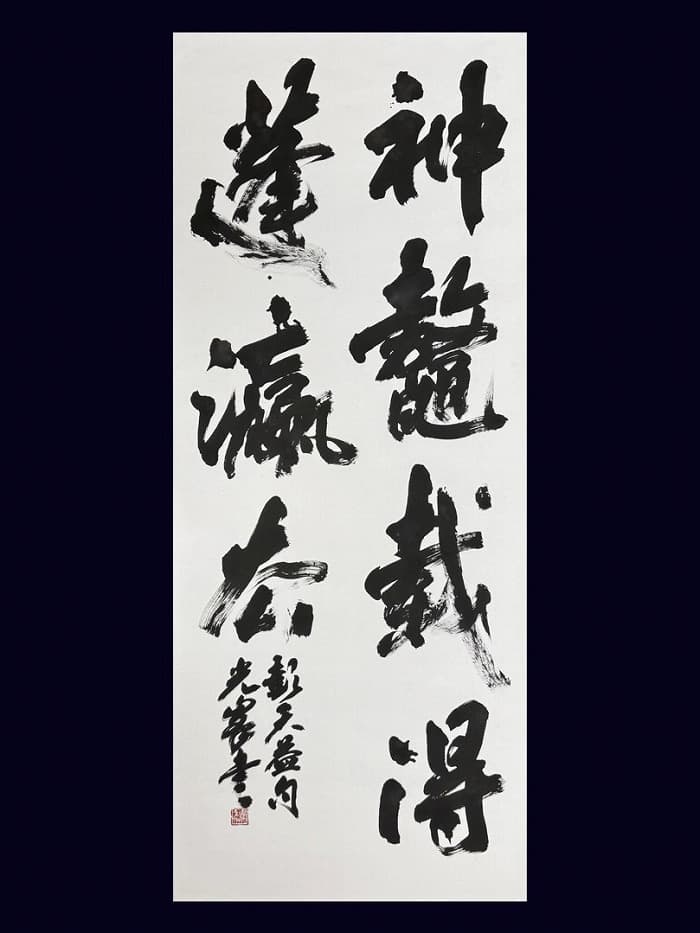 神鼇載得
蓬瀛去
彭天益句
光書